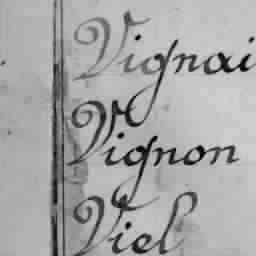 Vignai
Vignon
Viel